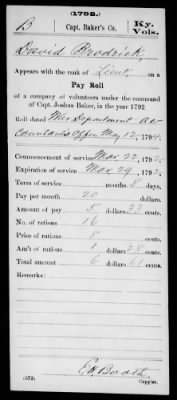 (1792.)
B
Capt. Baker's Co.
Ky. Vols.
David Brodrick,
Appears with the rank of Lieut. on a
Pay Roll
of a company of volunteers under the command
of Capt. Joshua Baker, in the year 1792.
Roll dated War Department Ac-
countant's Office May 12, 1794.
Commencement of service Mar. 22, 1792.
Expiration of service Mar. 29, 1792.
Term of service months 8 days.
Pay per month 20 dollars.
Amount of pay 5 dollars 33 cents.
No. of rations 16
Price of rations 8 cents.
Am't of rations 1 dollars 28 cents.
Total amount 6 dollars 61 cents.
Remarks:
E.H. Booth
(572) Copyist.